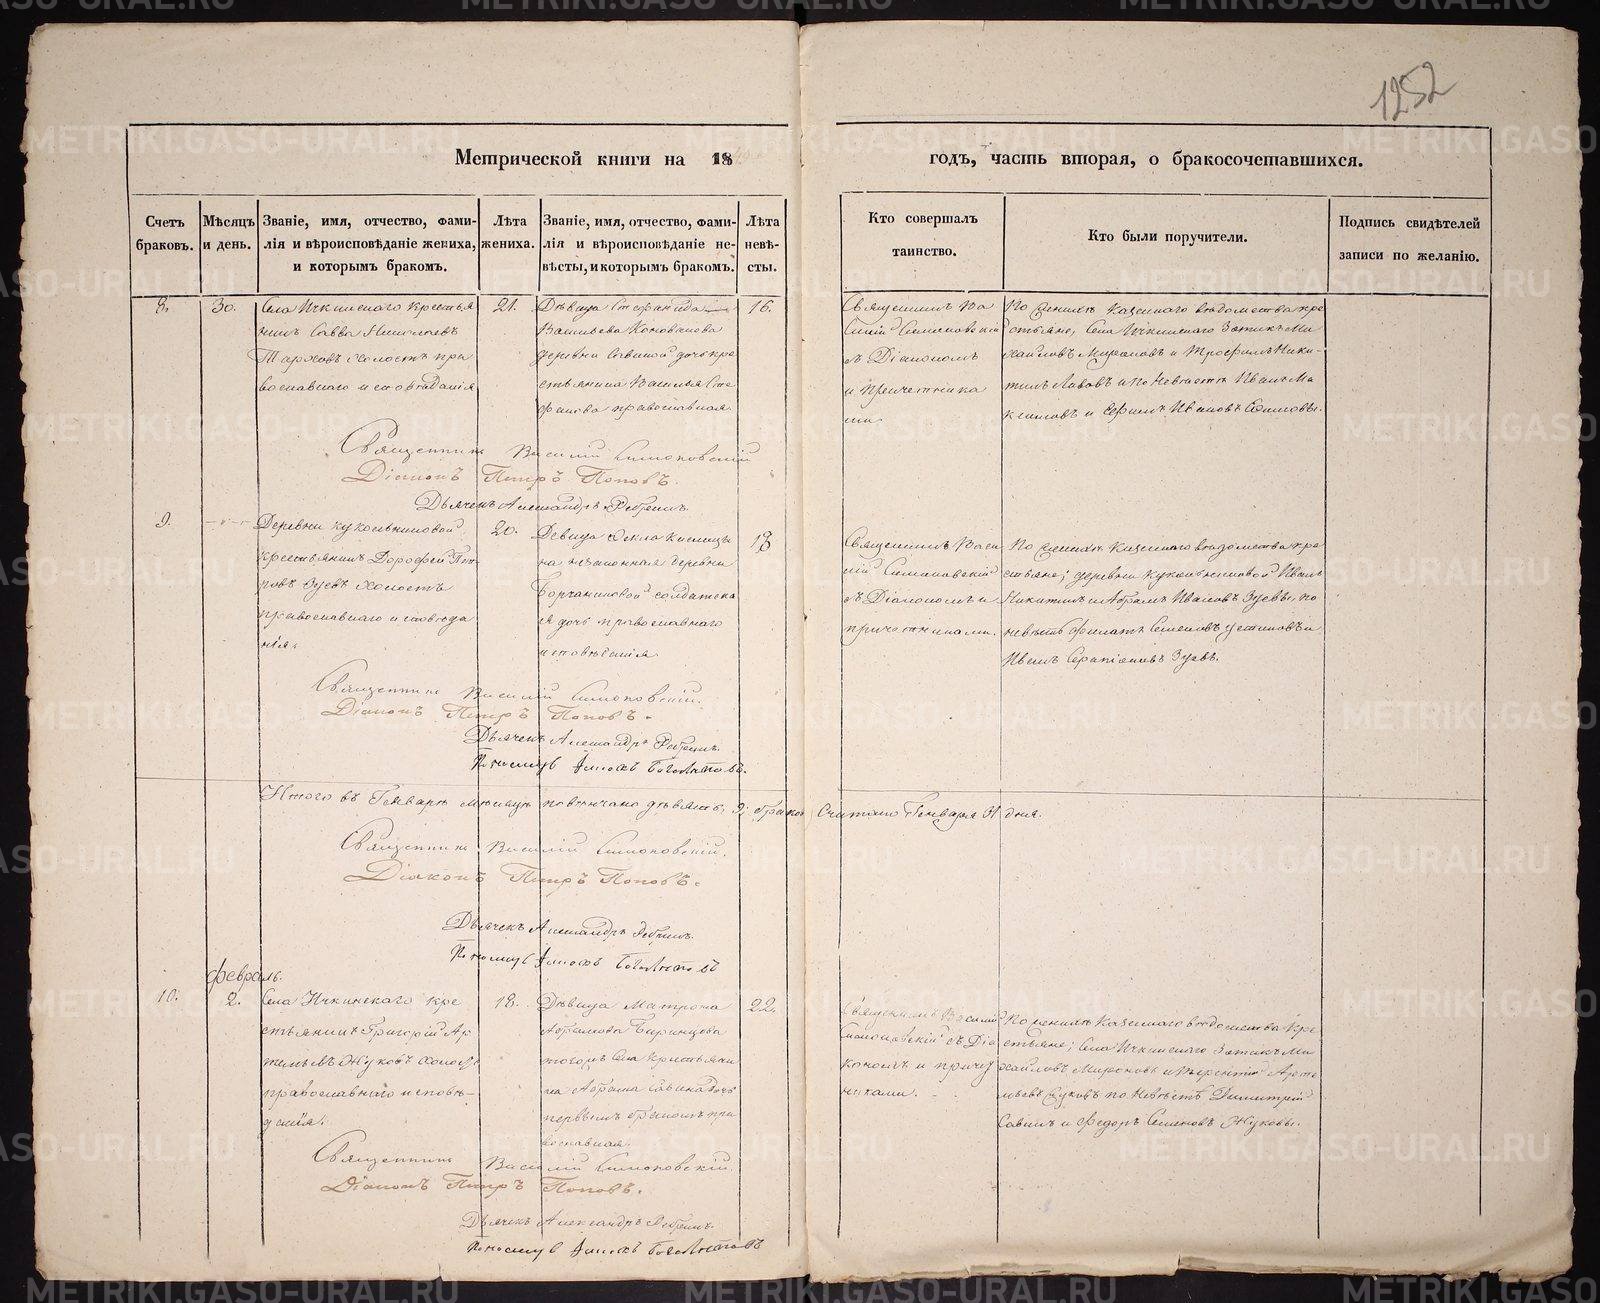 1252
Метрической книги на 18
годъ, часть вторая, о бракосочетавшихся.
Счетъ браковъ.
Мѣсяцъ и день.
Званіе, имя, отчество, фами-
лія и вѣроисповѣданіе жениха,
и которымъ бракомъ.
Лѣта
жениха.
Званіе, имя, отчество, фами-
лія и вѣроисповѣданіе не-
вѣсты, и которымъ бракомъ.
Лѣта
невѣ-
сты.
Кто совершалъ
таинство.
Кто были поручители.
Подпись свидѣтелей
записи по желанію.
8.
30.
Села Ичкинскаго крестья
нинъ Савва
Тарховъ холостъ пра
вославнаго исповѣданія
21.
Дѣвица Стефанида
Васильева Коновалова
деревни дочь кре
стьянина Василья Сте
фанова православная
16.
Священникъ Ва
силій Симоновскій
съ Діакономъ
и причетника
ми.
По женихѣ казеннаго вѣдомства кре
стьяне, села Ичкинскаго Зотикъ Ми
хайловъ Мироновъ и Трофимъ Ники-
тинъ и по невѣстѣ Иванъ Ма
ксимовъ и Ефимъ Ивановъ
Священникъ Василій Симоновскій
Діаконъ Петръ Поповъ.
Дьячекъ Александръ
9.
Деревни
крестьянинъ Дорофей Пет
ровъ Зуевъ холостъ
православнаго исповѣда
нія.
20.
Девица Фекла
на незаконная деревни
солдатска
я дочь православнаго
исповѣданія
18
Священникъ Васи
лій Симоновскій
съ Діакономъ и
причетниками.
По женихѣ казеннаго вѣдомства кре
стьяне; деревни Иванъ
Никитинъ и Абрамъ Ивановъ Зуевы, по
невѣстѣ Филатъ Семеновъ Устиновъ и
Иванъ Серапіоновъ Зуевъ.
Священникъ Василій Симоновскій.
Діаконъ Петръ Поповъ.
Дьячекъ Александръ
Пономарь
Итого въ Генварѣ мѣсяцѣ повѣнчано девять, 9, браков Считано Генваря 31 дня.
Священникъ Василій Симоновскій.
Діаконъ Петръ Поповъ.
Дьячекъ Александръ
Пономарь
февраль.
10.
2.
Села Ичкинскаго кре
стьянинъ Григорій Ар
темьевъ Жуковъ холостъ
православнаго исповѣ-
данія.
18.
Дѣвица Матрона
Абрамова
тогожъ села крестьяни
на Абрама Савина дочь
первымъ бракомъ пра
вославная.
22.
Священникъ Василій
Симоновскій съ Діа
кономъ и причет
никами.
По женихѣ казеннаго вѣдомства кре
стьяне; села Ичкинскаго Зотикъ Ми
хайловъ Мироновъ и Терентій Арте
мьевъ Жуковъ по невѣстѣ Димитрій
Савинъ и Федоръ Семеновъ Жуковы.
Священникъ Василій Симоновскій
Діаконъ Петръ Поповъ.
Дьячекъ Александръ
Пономарь
METRIKI.GASO-URAL.RU